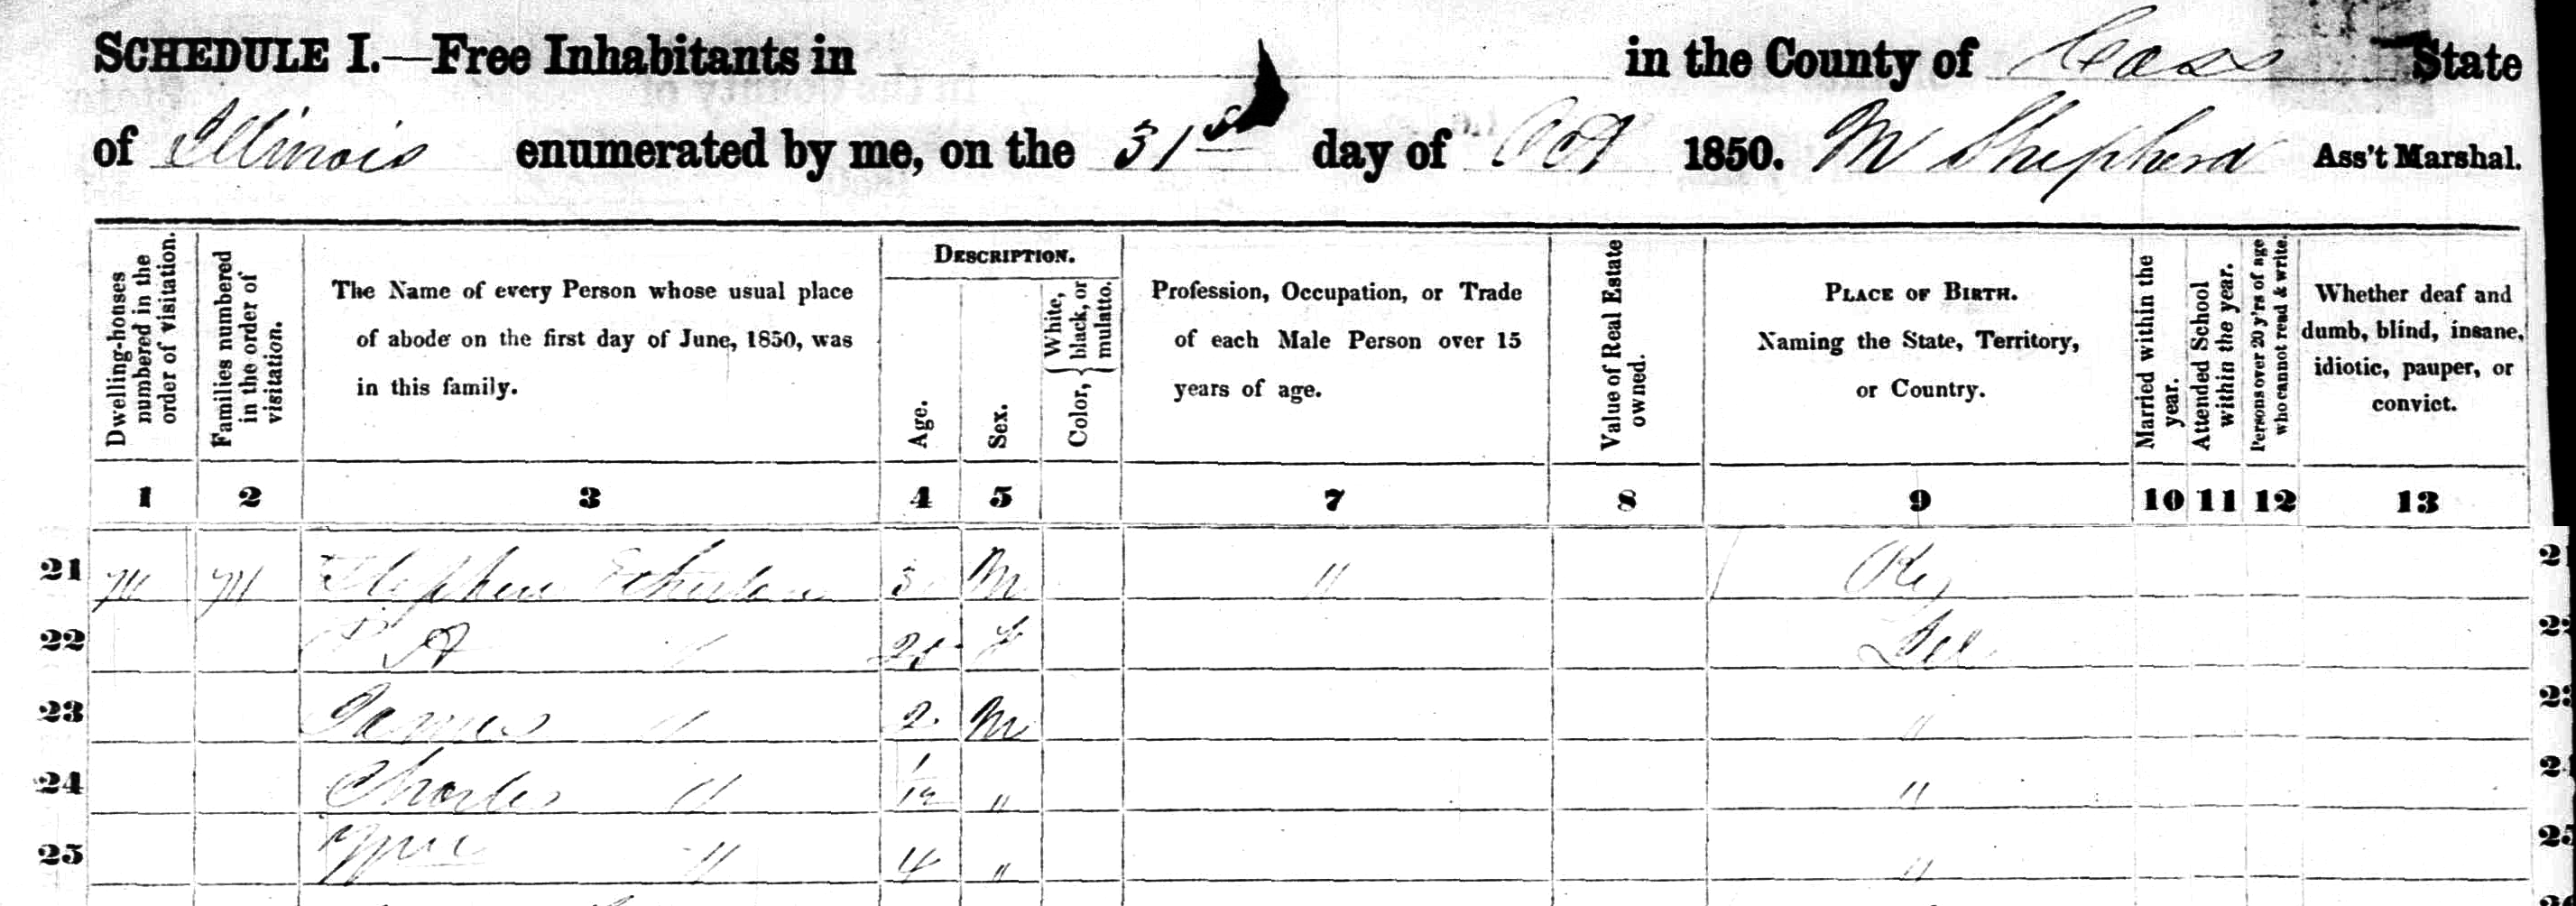 SCHEDULE I.—Free Inhabitants in in the County of Cass State
of Illinois enumerated by me, on the 31st day of Oct 1850. M Shepherd Ass't Marshal.
Dwelling-houses numbered in the order of visitation.
Families numbered in the order of visitation.
The Name of every Person whose usual place
of abode on the first day of June, 1850, was
in this family.
DESCRIPTION.
Age.
Sex.
Color, { White, black, or mulatto.
Profession, Occupation, or Trade
of each Male Person over 15
years of age.
Value of Real Estate owned.
PLACE OF BIRTH.
Naming the State, Territory,
or Country.
Married within the year.
Attended School within the year.
Persons over 20 y'rs of age who cannot read & write.
Whether deaf and
dumb, blind, insane,
idiotic, pauper, or
convict.
1 2 3 4 5 7 8 9 10 11 12 13
21 Stephen M " Ky 2
22 A " 25 F Ill 2
23 James " 2 M " 2
24 Charles " 1/12 " " 2
25 " 4 " " 25